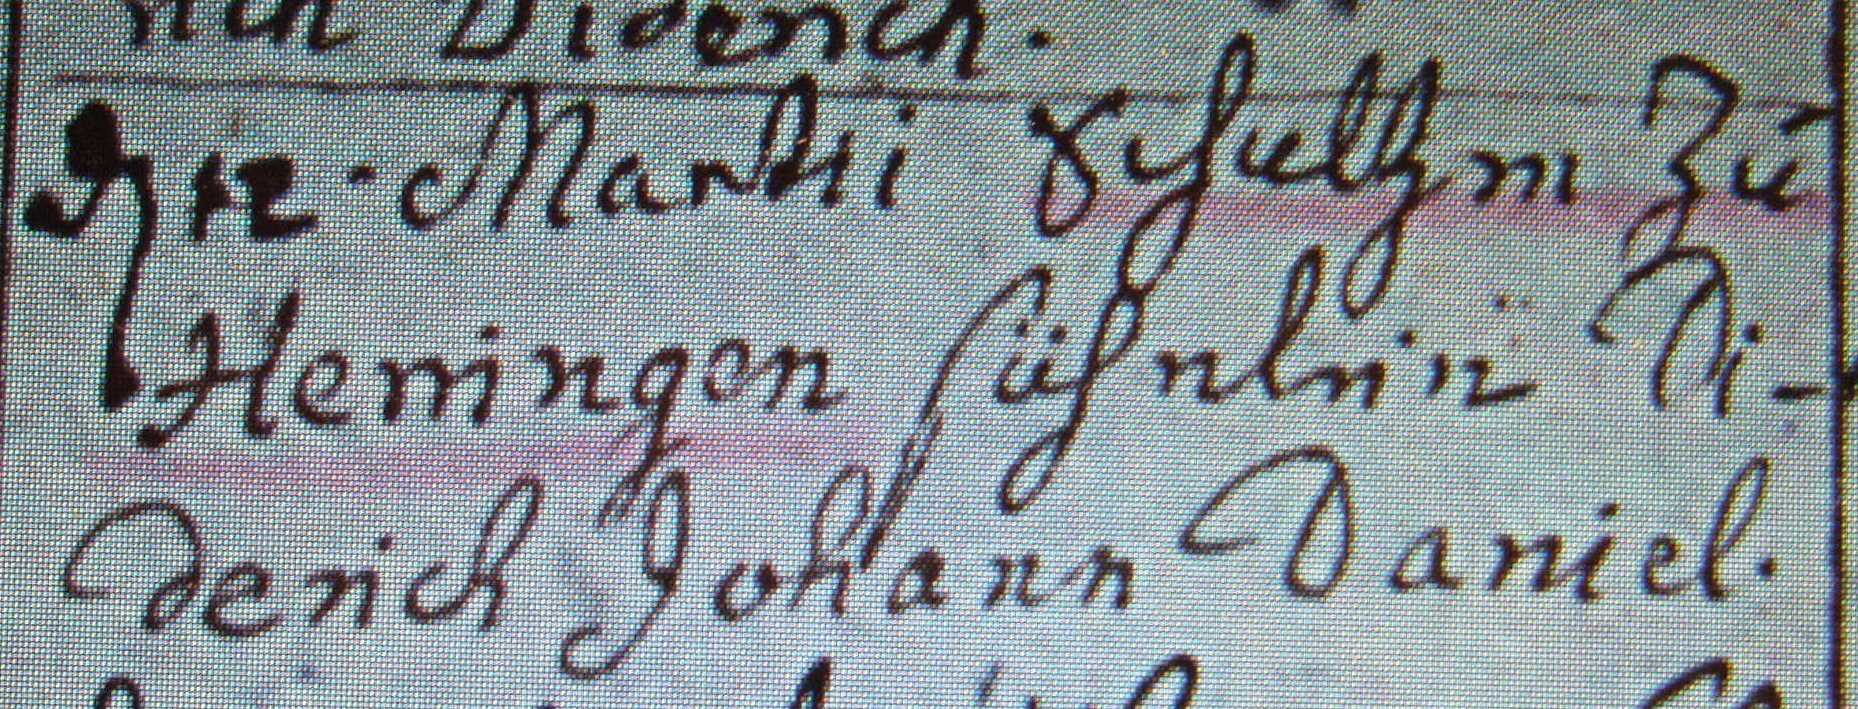 rich Diderich.
Hr. Martini Schultzen zu
Hemingen Söhnlein Di-
derich Johann Daniel.